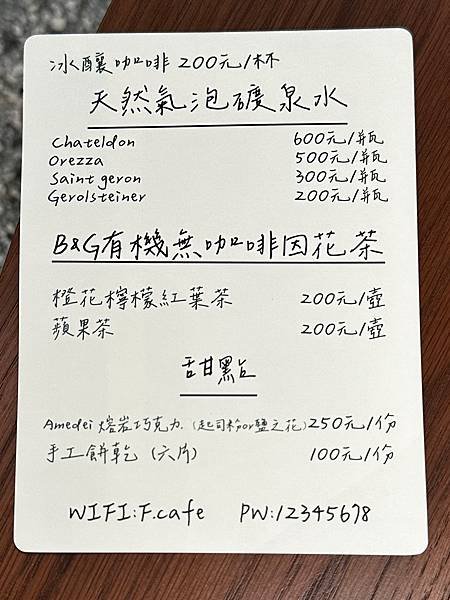 冰釀咖啡 200元/杯
天然氣泡礦泉水
Chateldon 600元/瓶
Orezza 500元/瓶
Saint geron 300元/瓶
Gerolsteiner 200元/瓶
B&G有機無咖啡因花茶
橙花檸檬紅葉茶 200元/壺
蘋果茶 200元/壺
甜點
Amedei 熔岩巧克力 (起司粉or鹽之花) 250元/份
手工餅乾 (六片) 100元/份
WIFI:F.cafe PW:12345678